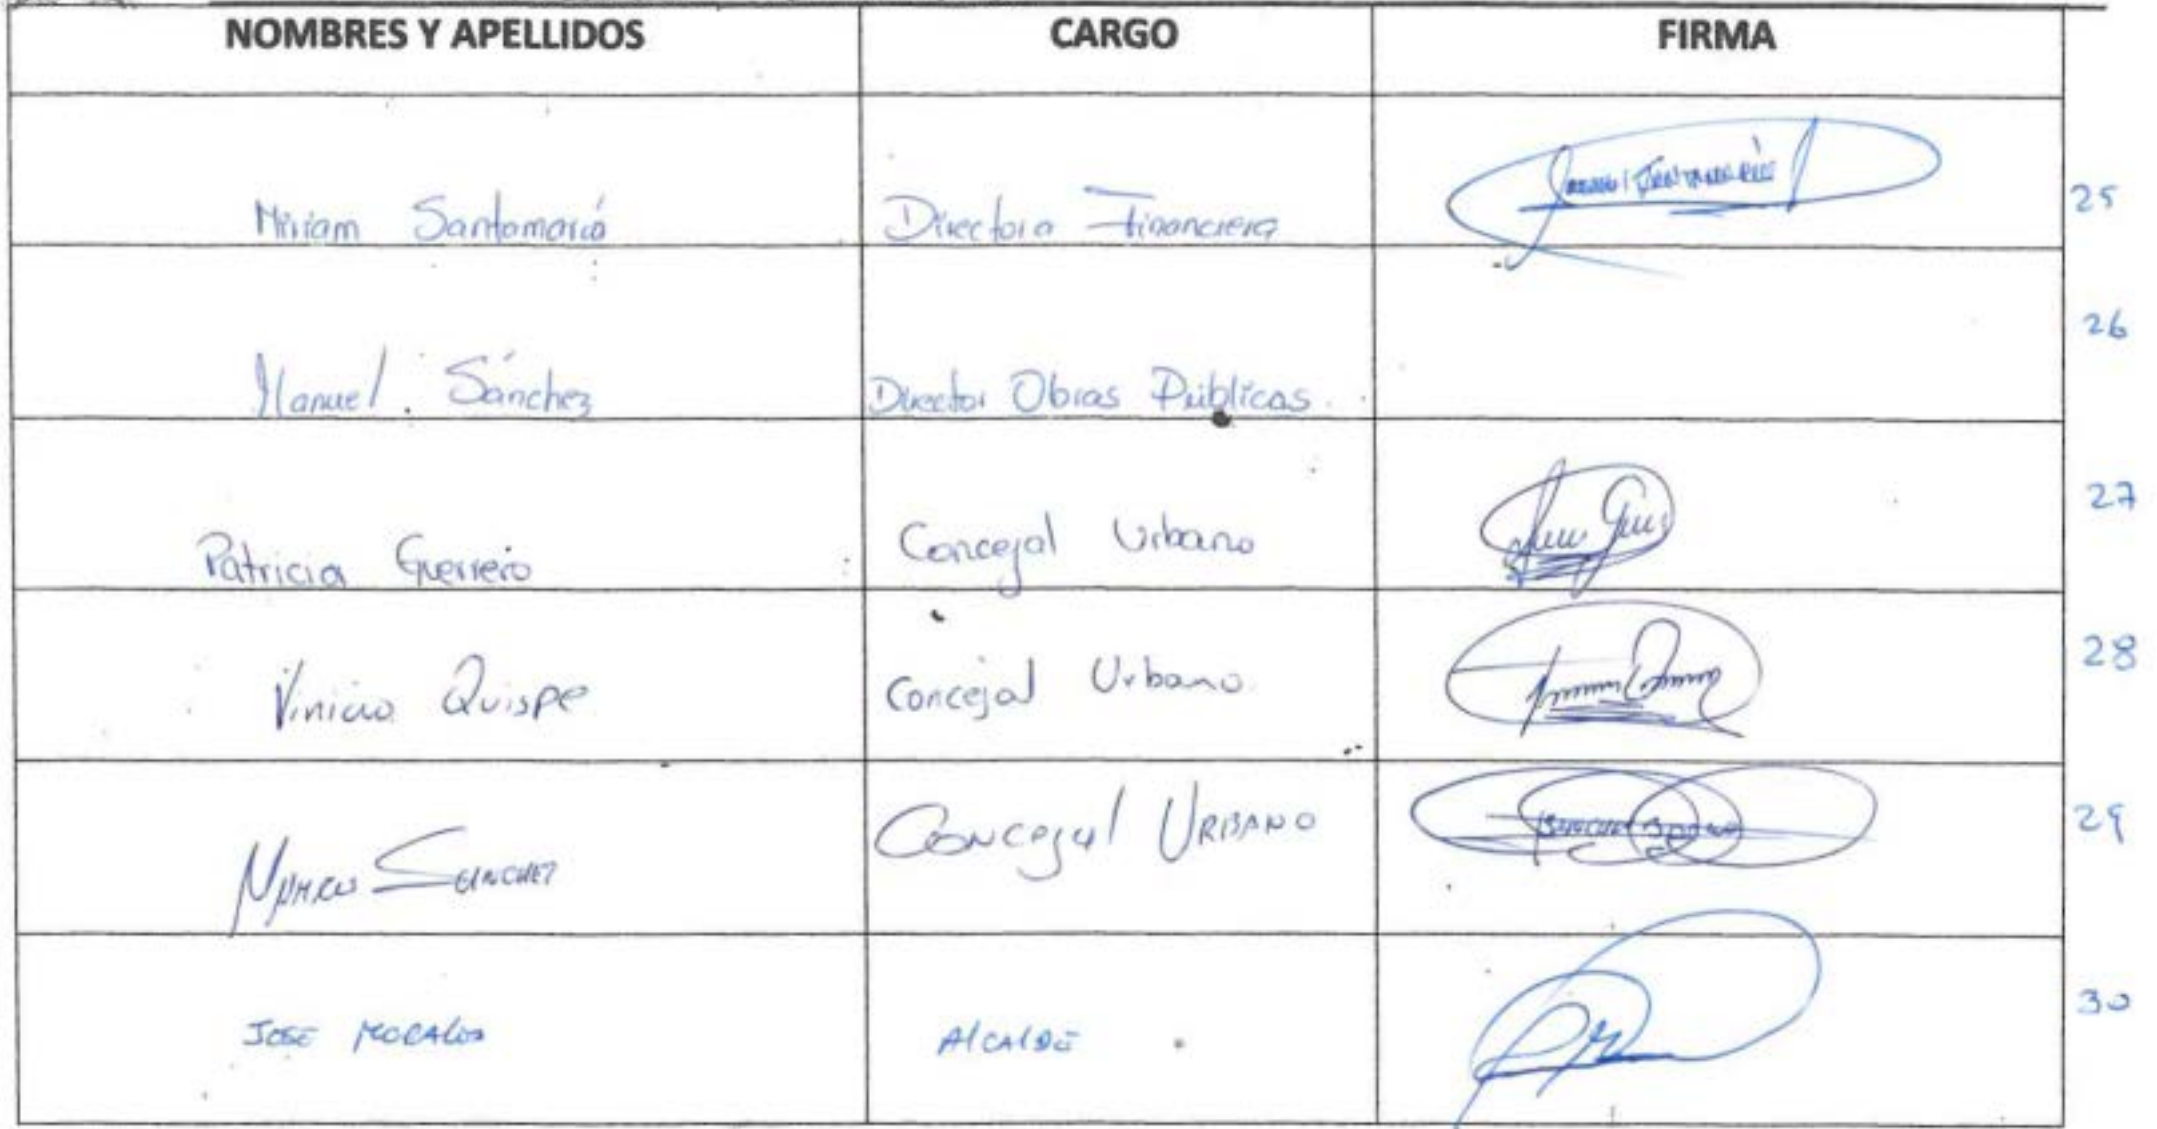 NOMBRES Y APELLIDOS CARGO FIRMA
Miriam Santamaría Directora Financiera 25
26
Manuel Sánchez Director Obras Públicas
Patricia Guerrero Concejal Urbano 27
Vinicio Quispe Concejal Urbano 28
Marco Sanchez Concejal Urbano 29
Jose Morales Alcalde 30